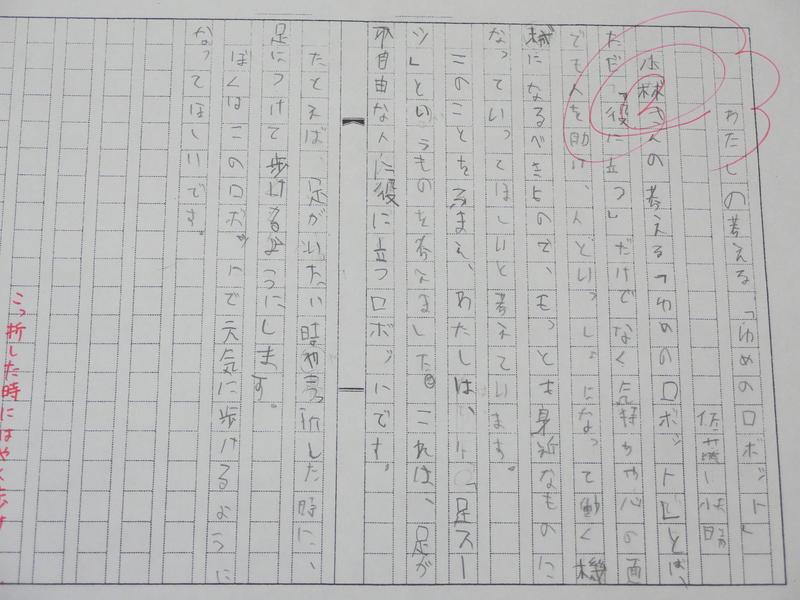 わたしの考える「ゆめのロボット」
佐藤
小林さんの考える「ゆめのロボット」とは、
ただ「役に立つ」だけでなく気持ちや心の面
でも人を助け、人といっしょになって働く機
械になるべきもので、もっとも身近なものに
なっていってほしいと考えています。
このことをふまえ、わたしは、「足スー
ツ」というものを考えました。これは、足が
不自由な人に役に立つロボットです。
たとえば、足がいたい時や骨折した時に、
足につけて歩けるようにします。
ぼくはこのロボットで元気に歩けるように
なってほしいです。
こっ折した時にはやく歩け